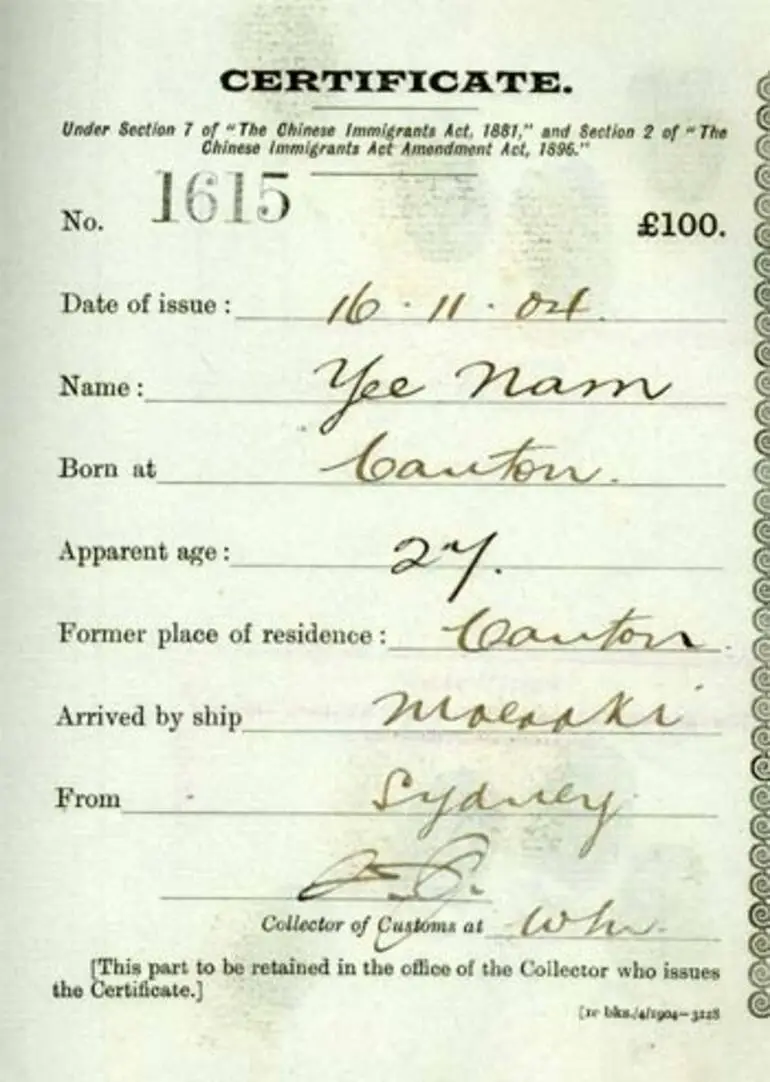 CERTIFICATE.
Under Section 7 of "The Chinese Immigrants Act, 1881," and Section 2 of "The
Chinese Immigrants Act Amendment Act, 1896."
No. 1615 £100.
Date of issue: 16.11.04.
Name: Yee Nam
Born at Canton.
Apparent age: 27.
Former place of residence: Canton.
Arrived by ship Moeraki
From Sydney
Collector of Customs at
[This part to be retained in the office of the Collector who issues
the Certificate.]
bks./4/1904—3128